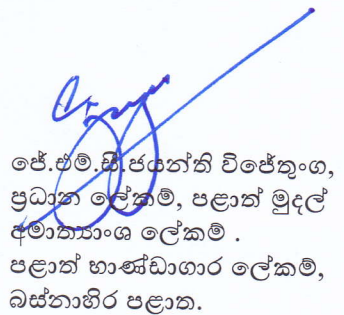 ජේ.එම්.සී.ජයන්ති විජේතුංග,
ප්‍රධාන ලේකම්, පළාත් මුදල්
අමාත්‍යාංශ ලේකම් .
පළාත් භාණ්ඩාගාර ලේකම්,
බස්නාහිර පළාත.